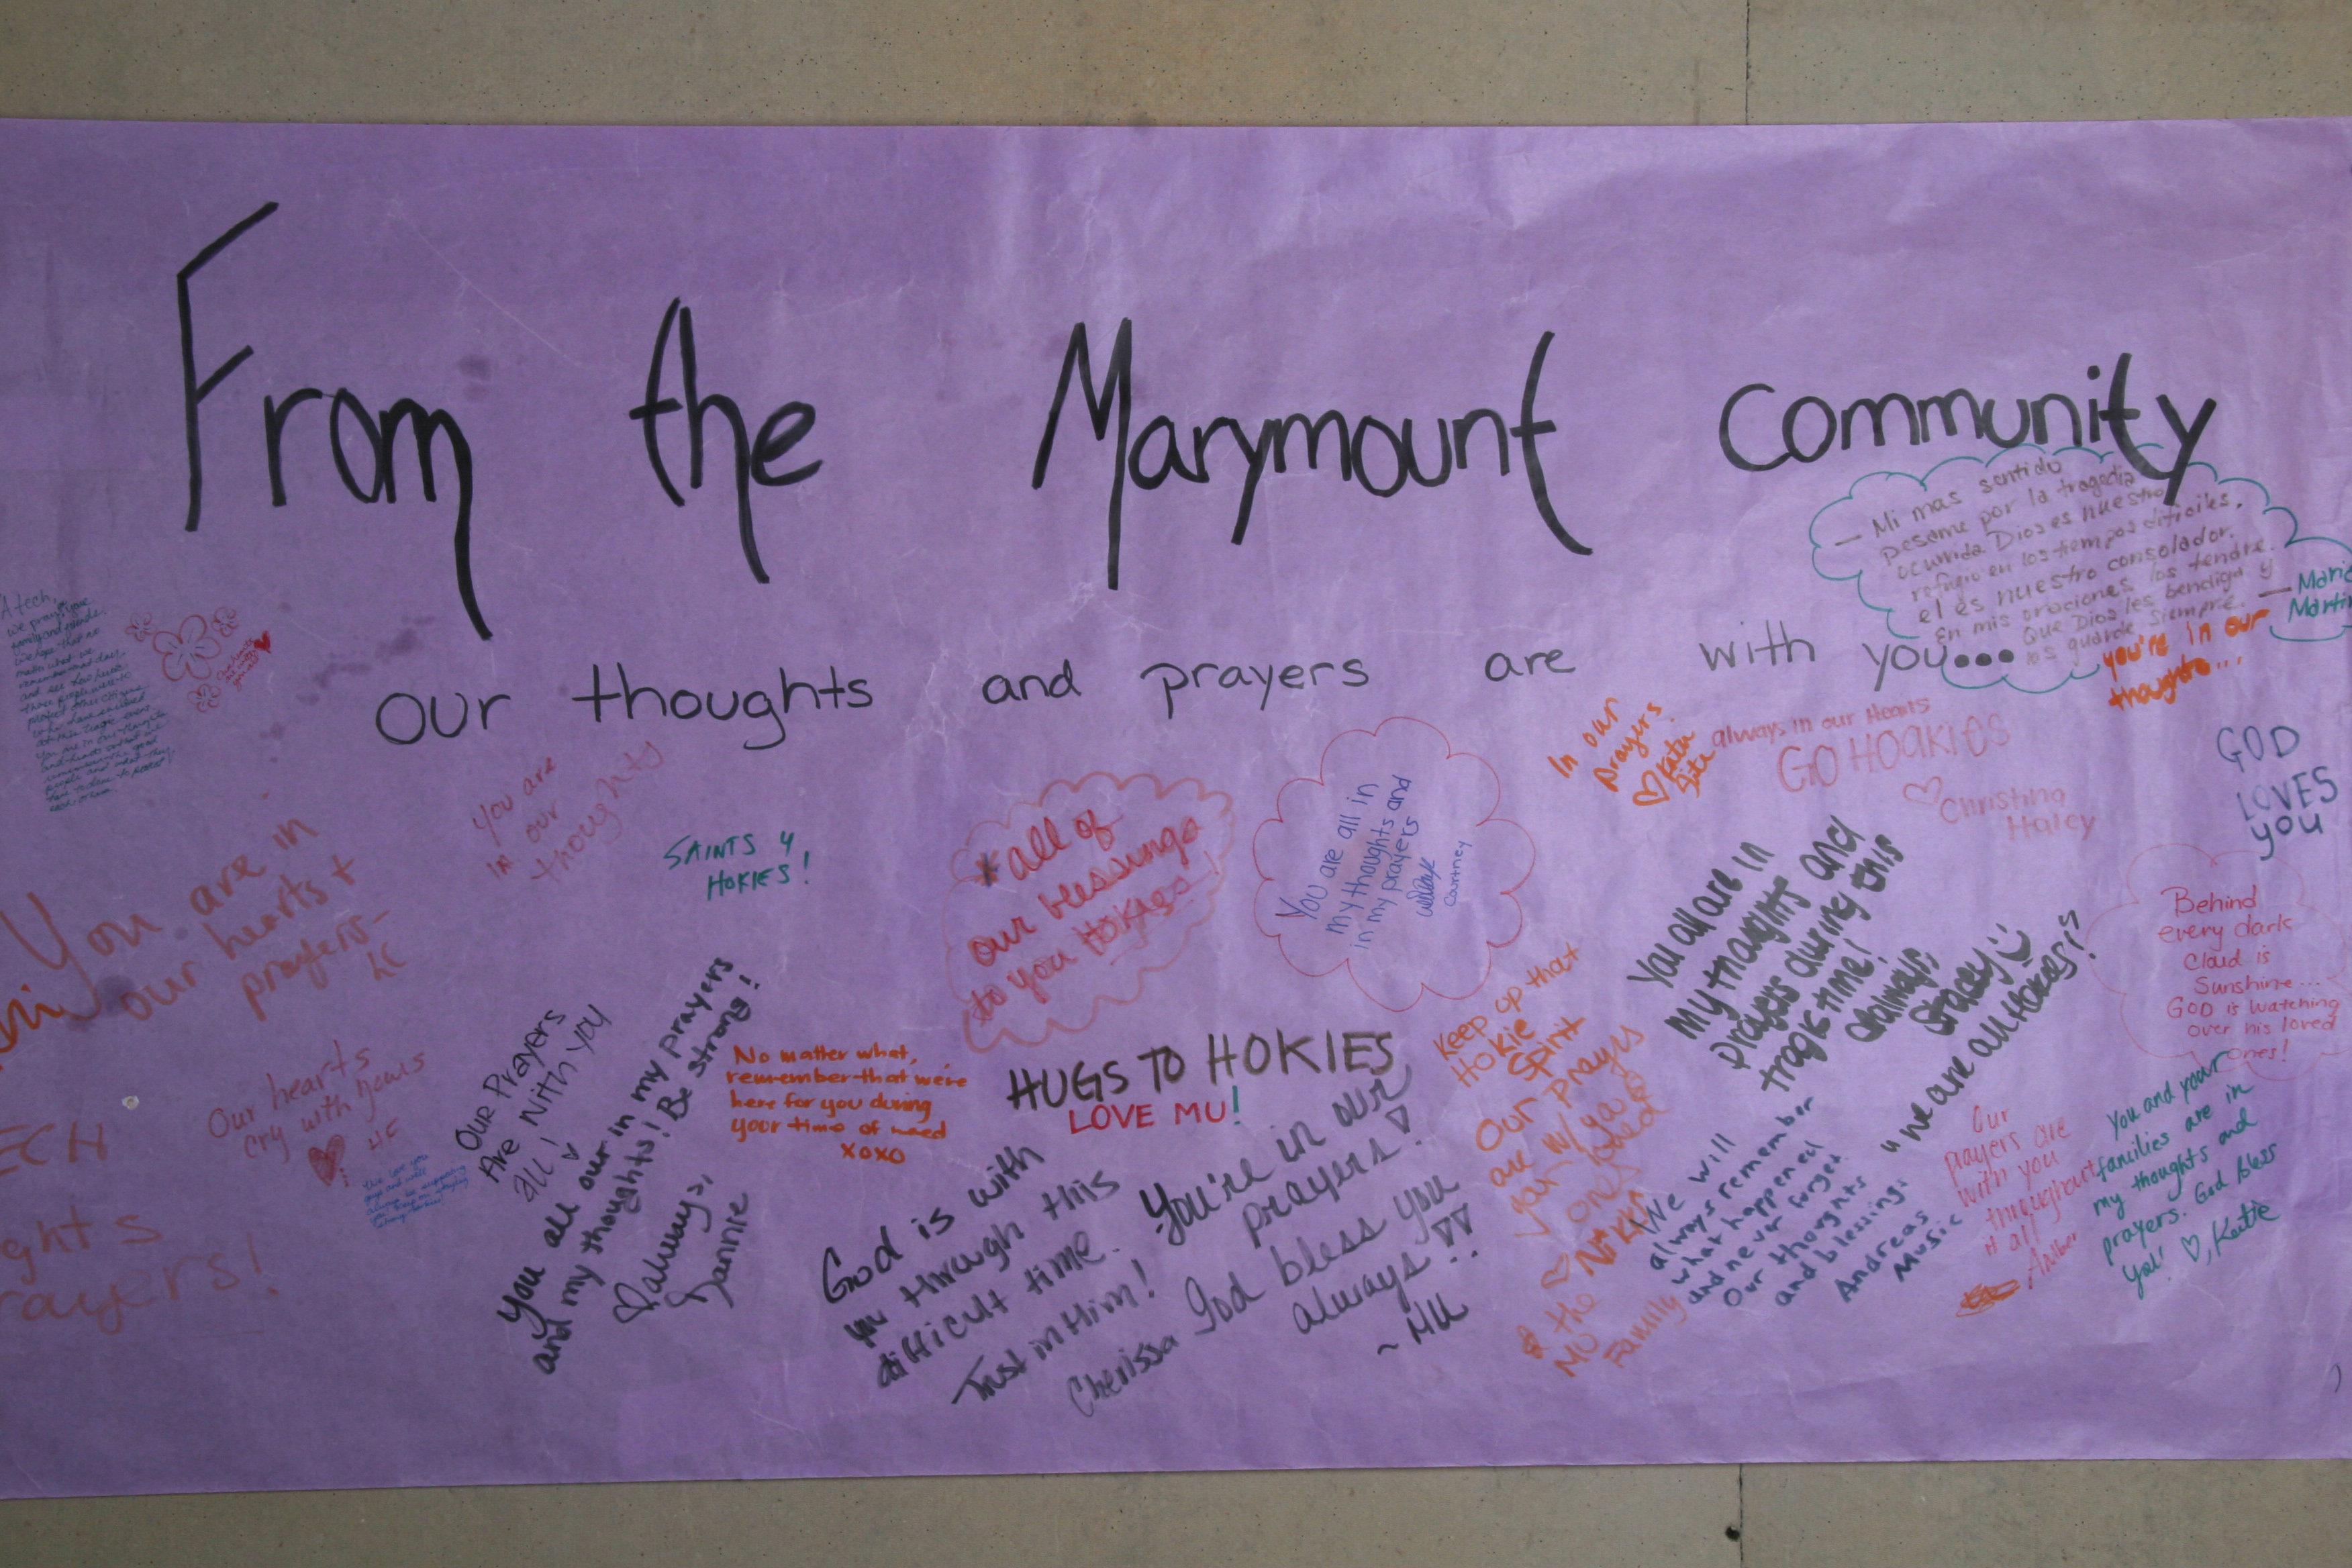 From the Marymount Community
our thoughts and prayers are with you...
— Mi mas sentido
pesame por la tragedia
ocurrida Dios es nuestro
refugio en los tiempos dificiles.
el es nuestro consolador.
En mis oraciones los tendre.
Que Dios les bendiga y
los guarde siempre. —
Maria
Martin
you're in our
thoughts...
A tech,
we pray
You are in
our hearts +
prayers—
LC
You are
in our
thoughts
SAINTS 4
HOKIES!
* all of
our blessings
to you HOKIES!
You are all in
my thoughts and
in my prayers
Courtney
In our
prayers.
♡ Katie
always in our Hearts
GO HOAKIES
♡ Christina
Haley
GOD
LOVES
you
Behind
every dark
cloud is
Sunshine...
GOD is watching
over his loved
ones!
ECH
ghts
rayers!
Our hearts
cry with yours
Our Prayers
Are With you
all!
you all our in my prayers
and my thoughts! Be strong!
♡ always,
Jannie
No matter what,
remember that we're
here for you during
your time of need
xoxo
HUGS TO HOKIES
LOVE MU!
God is with
you through this
difficult time.
Trust in Him!
Cherissa
You're in our
prayers!
God bless you
always!!
~MU
Keep up that
Hokie
Spirit
Our prayers
are w/ you &
your loved
ones
♡ Nikki
& the
MU
Family
You all are in
my thoughts and
prayers during this
tragic time!
always,
Stacey
"we are all Hokies!"
We will
always remember
what happened
and never forget
Our thoughts
and blessings
Andreas
Music
Our
prayers are
with you
throughout
it all
Amber
You and your
families are in
my thoughts and
prayers. God bless
you! ♡, Katie